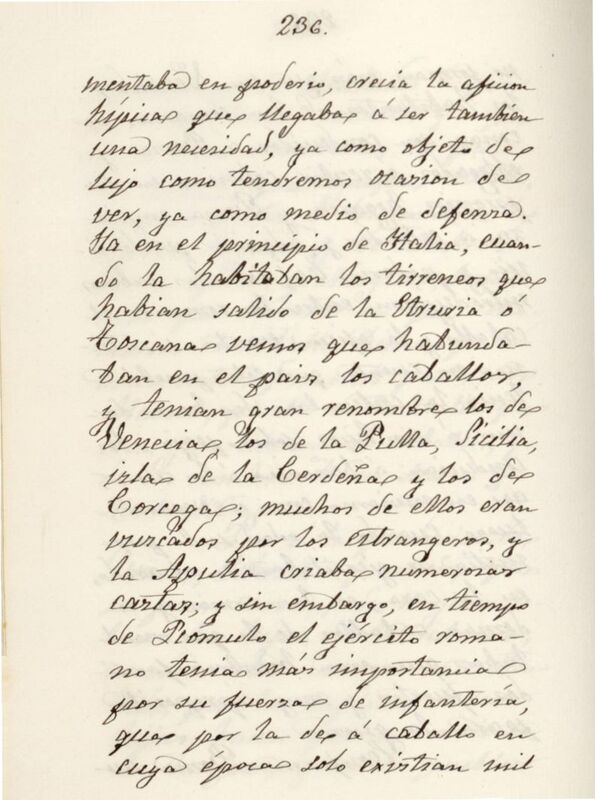 236.
mentaba en poderio, crecia la aficion
hípica que llegaba á ser tambien
una necesidad, ya como objeto de
lujo como tendremos ocasion de
ver, ya como medio de defensa.
Ya en el principio de Italia, cuan-
do la habitaban los tirreneos que
habian salido de la Etruria ó
Toscana vemos que habunda-
ban en el pais los caballos,
y tenian gran renombre los de
Venecia, los de la Pulla, Sicilia,
isla de la Cerdeña y los de
Corcega; muchos de ellos eran
vuscados por los estrangeros, y
la Apulia criaba numerosas
castas; y sin embargo, en tiempo
de Rómulo el ejército roma-
no tenia más importancia
por su fuerza de infantería,
que por la de á caballo en
cuya época solo existian mil